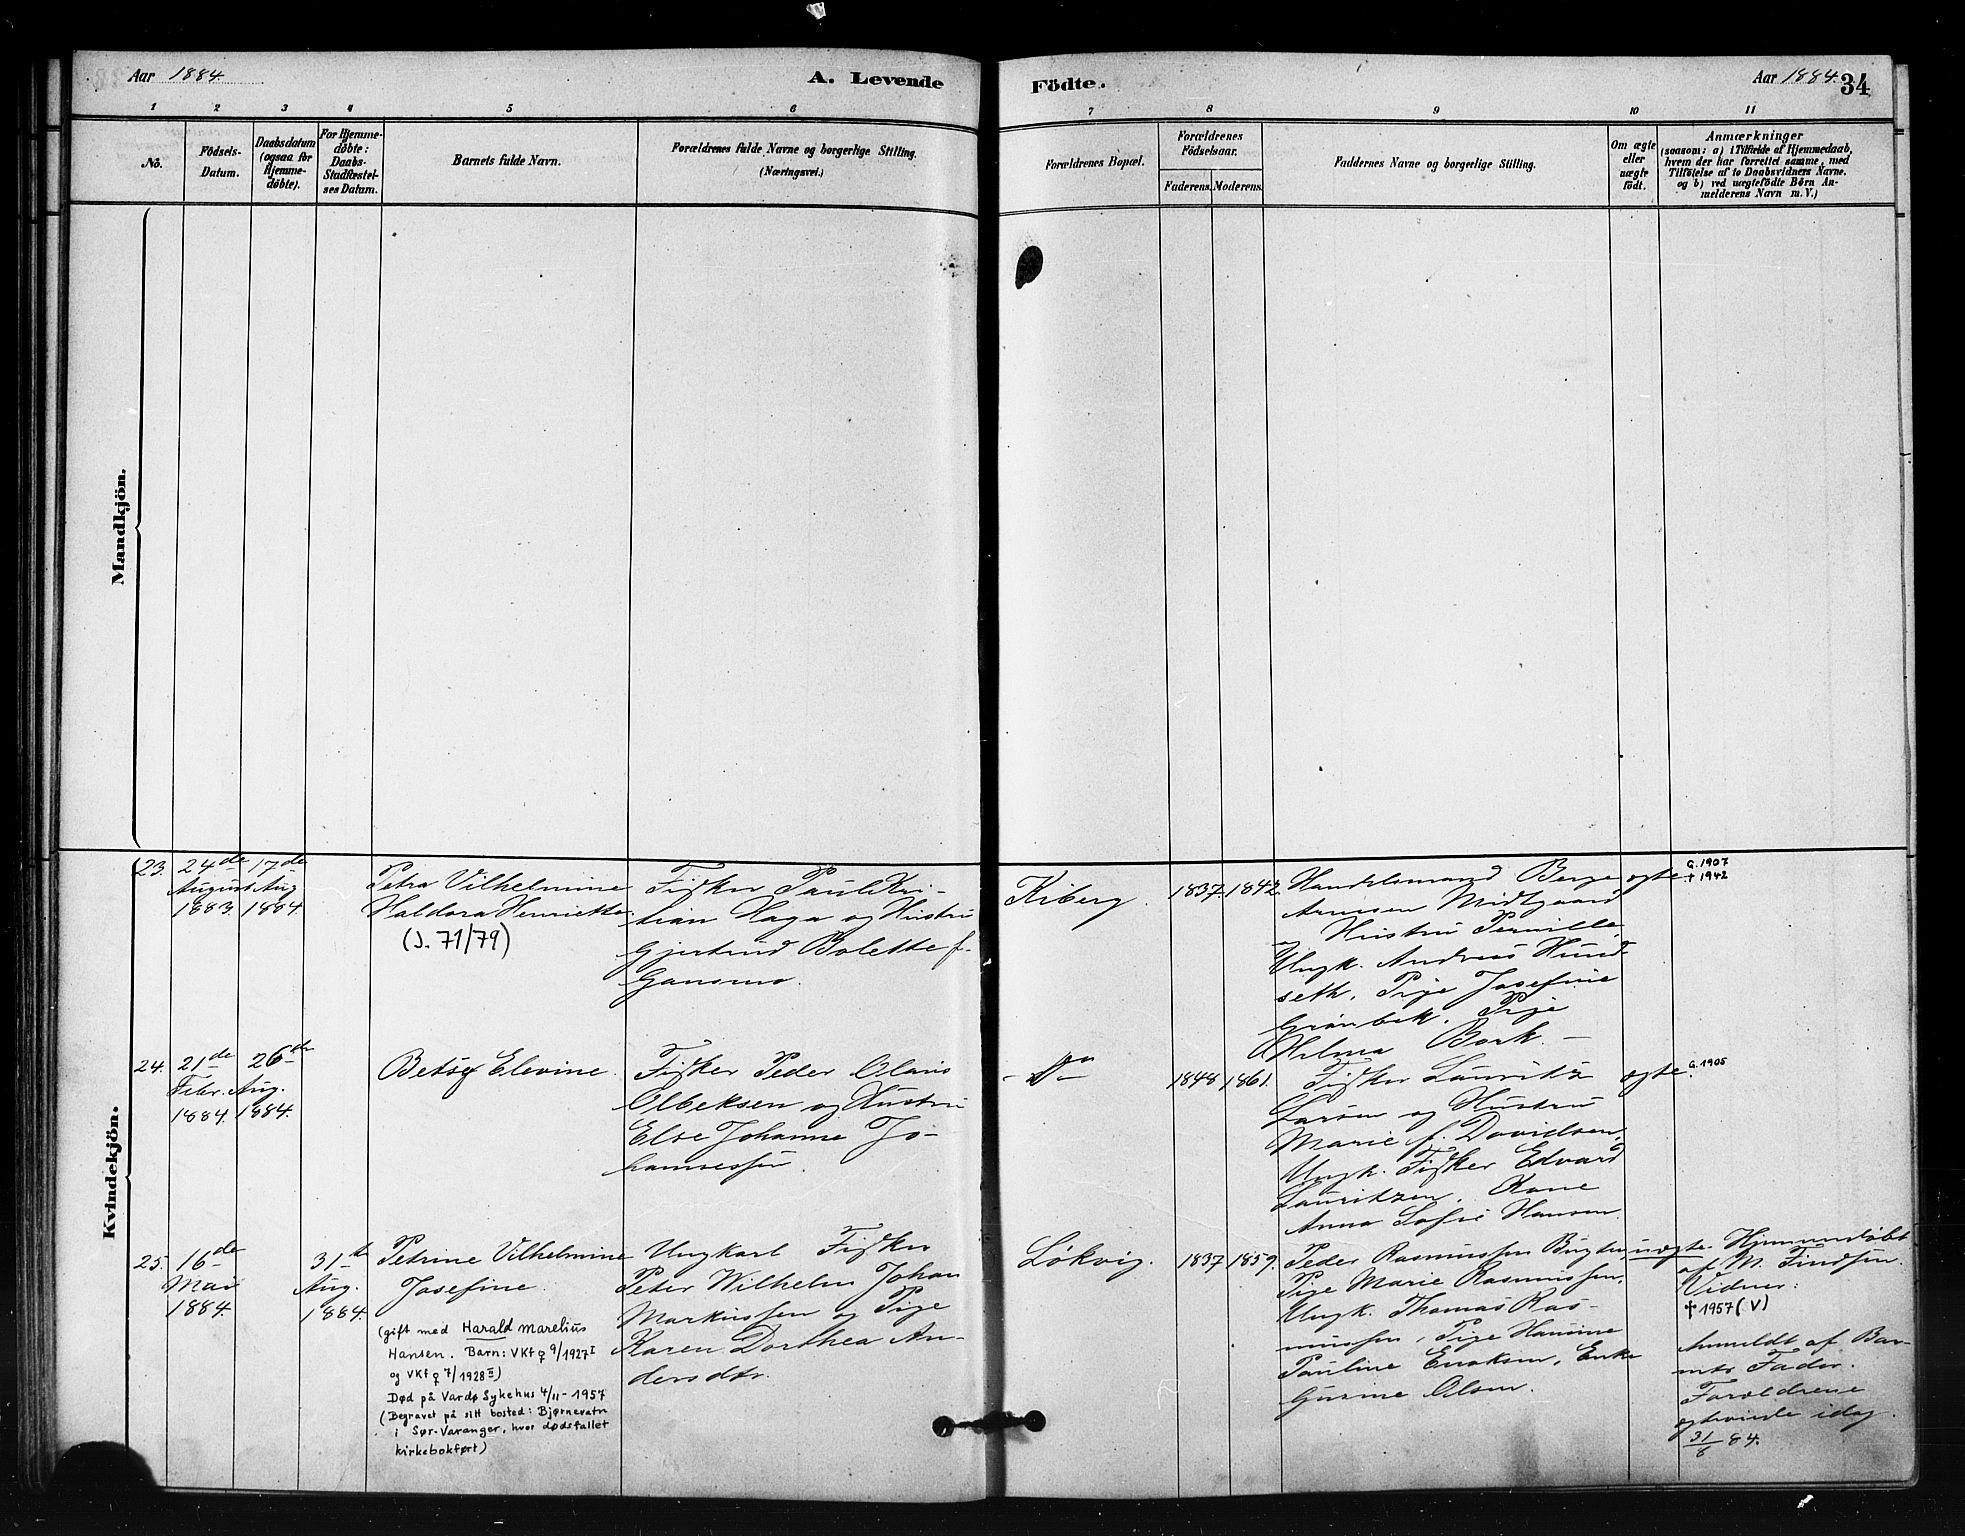 Aar 1884.
A. Levende
Födte.
Aar 1884.
34
1 2 3 4 5 6 7 8 9 10 11
No.
Födsels-
Datum.
Daabsdatum
(ogsaa for
Hjemme-
döbte).
For Hjemme-
döbte:
Daabs-
Stadfæstel-
ses Datum.
Barnets fulde Navn.
Forældrenes fulde Navne og borgerlige Stilling.
(Næringsvei.)
Forældrenes Bopæl.
Forældrenes
Födselsaar.
Faderens. Moderens.
Faddernes Navne og borgerlige Stilling.
Om ægte
eller
uægte
födt.
Anmærkninger
(saasom: a) i Tilfælde af Hjemmedaab,
hvem der har forrettet samme, med
Tilföielse af to Daabsvidners Navne.
og b) ved uægtefödte Börn An-
melderens Navn m. V.)
Mandkjön.
Kvindekjön.
23.
24de
August
1883.
17de
Aug
1884.
Petra Vilhelmine
Haldora Henriette
(J. 71/79)
Fisker Paul Kri-
tian Haga og Hustru
Gjertrud Bolette f.
Gansmo.
Kiberg.
1837. 1842.
Handelsmand Berge
Arnesen Midtgaard
Hustru Pernille,
Ungk. Andreas Hund-
seth, Pige Josefine
Grönbek. Pige
Hilma Bork. —
ægte.
G. 1907
† 1942
24.
21de
Febr.
1884.
26de
Aug.
1884.
Betsey Elevine.
Fisker Peder Olaris
Olbeksen og Hustru
Else Johanne Jo-
hannessen.
- Do -
1848 1861.
Fisker Lauritz
Larsen og Hustru
Marie f. Davidsen,
Ungk. Fisker Edvard
Lauritzen. Kone
Anna Sofie Hansen.
ægte.
G. 1905
25.
16de
Mai
1884.
31te
Aug.
1884.
Petrine Vilhelmine
Josefine.
(gift med Harald Marelius
Hansen. Barn: VKf ♀ 9/1927 I
og VKf ♀ 7/1928 II)
Død på Vardø Sykehus 4/11-1957
(Begravet på sitt bosted: Bjørnevatn
i Sør-Varanger, hvor dødsfallet
kirkebokført)
Ungkarl Fisker
Peter Wilhelm Johan
Markussen og Pige
Karen Dorthea An-
dersdtr.
Løkvig.
1837 1859.
Peder Rasmussen Bugten,
Pige Marie Rasmussen,
Ungk. Thomas Ras-
mussen, Pige Hansine
Pauline Enoksen, Enke
Gurine Olsen.
uægte.
Hjemmedøbt
af M. Findsen.
Vidner:
✝ 1957 (V)
Anmeldt af Bar-
nets Fader.
Forældrene
ægteviede idag.
31/8 84.